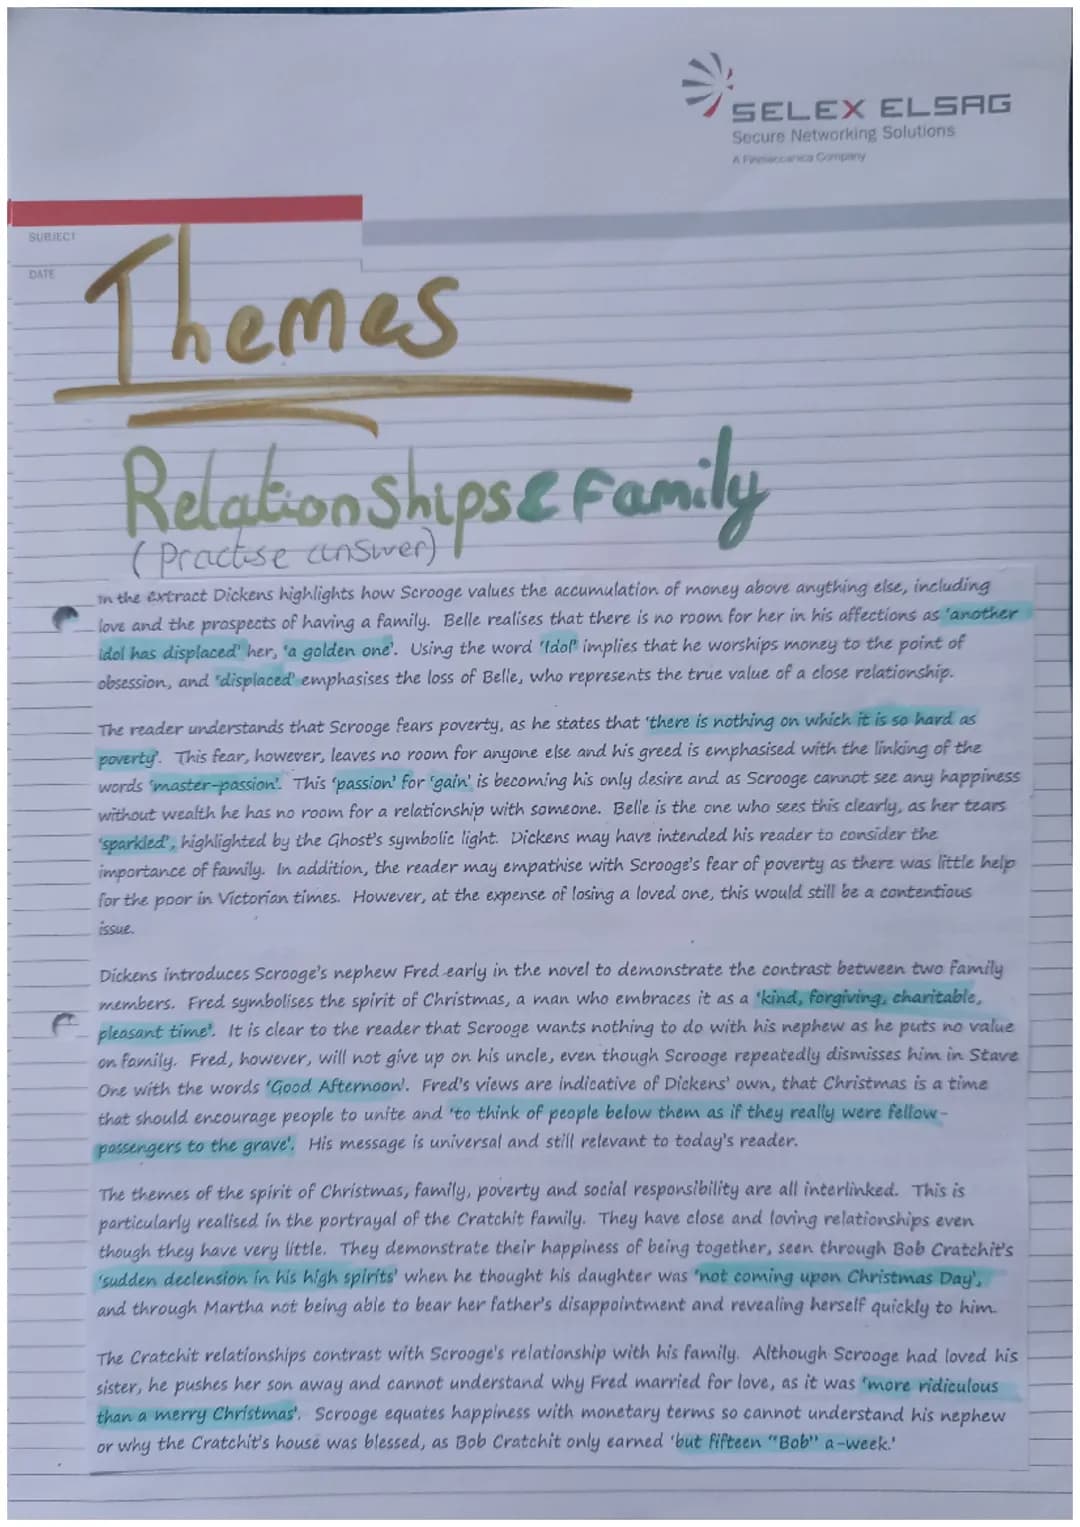 SELEX ELSAG
Secure Networking Solutions
A Finmeccanica Company
SUBJECT
DATE
Themes
Relationships & Family
(Practise answer)
In the extract Dickens highlights how Scrooge values the accumulation of money above anything else, including
love and the prospects of having a family. Belle realises that there is no room for her in his affections as 'another
idol has displaced' her, 'a golden one'. Using the word 'Idol' implies that he worships money to the point of
obsession, and 'displaced' emphasises the loss of Belle, who represents the true value of a close relationship.
The reader understands that Scrooge fears poverty, as he states that 'there is nothing on which it is so hard as
poverty'. This fear, however, leaves no room for anyone else and his greed is emphasised with the linking of the
words 'master-passion'. This 'passion' for 'gain' is becoming his only desire and as Scrooge cannot see any happiness
without wealth he has no room for a relationship with someone. Belle is the one who sees this clearly, as her tears
'sparkled', highlighted by the Ghost's symbolic light. Dickens may have intended his reader to consider the
importance of family. In addition, the reader may empathise with Scrooge's fear of poverty as there was little help
for the poor in Victorian times. However, at the expense of losing a loved one, this would still be a contentious
issue.
Dickens introduces Scrooge's nephew Fred early in the novel to demonstrate the contrast between two family
members. Fred symbolises the spirit of Christmas, a man who embraces it as a 'kind, forgiving, charitable,
pleasant time'. It is clear to the reader that Scrooge wants nothing to do with his nephew as he puts no value
on family. Fred, however, will not give up on his uncle, even though Scrooge repeatedly dismisses him in Stave
One with the words 'Good Afternoon'. Fred's views are indicative of Dickens' own, that Christmas is a time
that should encourage people to unite and 'to think of people below them as if they really were fellow-
passengers to the grave'. His message is universal and still relevant to today's reader.
The themes of the spirit of Christmas, family, poverty and social responsibility are all interlinked. This is
particularly realised in the portrayal of the Cratchit family. They have close and loving relationships even
though they have very little. They demonstrate their happiness of being together, seen through Bob Cratchit's
'sudden declension in his high spirits' when he thought his daughter was 'not coming upon Christmas Day',
and through Martha not being able to bear her father's disappointment and revealing herself quickly to him.
The Cratchit relationships contrast with Scrooge's relationship with his family. Although Scrooge had loved his
sister, he pushes her son away and cannot understand why Fred married for love, as it was 'more ridiculous
than a merry Christmas'. Scrooge equates happiness with monetary terms so cannot understand his nephew
or why the Cratchit's house was blessed, as Bob Cratchit only earned 'but fifteen "Bob" a-week.'